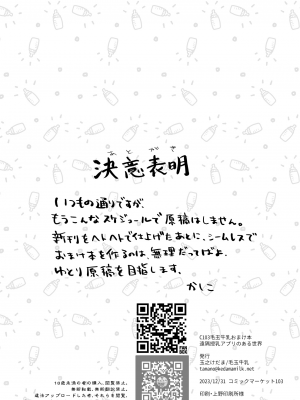 あとがき
決意表明
いつもの通りですが、
もうこんなスケジュールで原稿はしません。
新刊をヘトヘトで仕上げたあとに、シームレスで
おまけ本を作るのは、無理だってばよ。
ゆとり原稿を目指します。
かしこ
C103毛玉牛乳おまけ本
遠隔授乳アプリのある世界
発行
玉之けだま/毛玉牛乳
tamano@kedamamilk.net
2023/12/31 コミックマーケット103
印刷・上野印刷所様
18歳未満の者の購入、閲覧禁止。
無断転載、無断翻訳禁止。
違法アップロードした者、それらを閲覧、